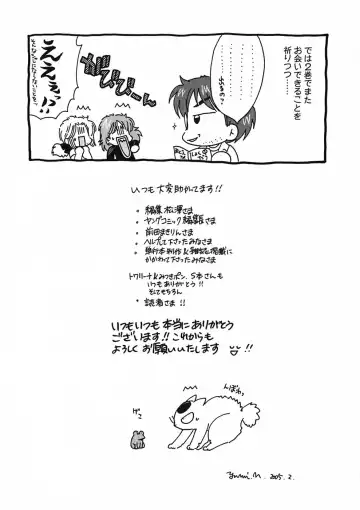 では2巻でまた
お会いできることを
祈りつつ……
ええぇっ!!
がびびーん
いつも大変助かってます!!
編集 松澤さま
ヤングコミック編集部さま
前田まきりんさま
ヘルプして下さったみなさま
かかわって下さったみなさま
いつもありがとう!!
そしてもちろん
読者さま!!
いつもいつも本当にありがとう
ございます!! これからも
ようしくお願いいたします
んばわっ
ゲコ
2005.2.